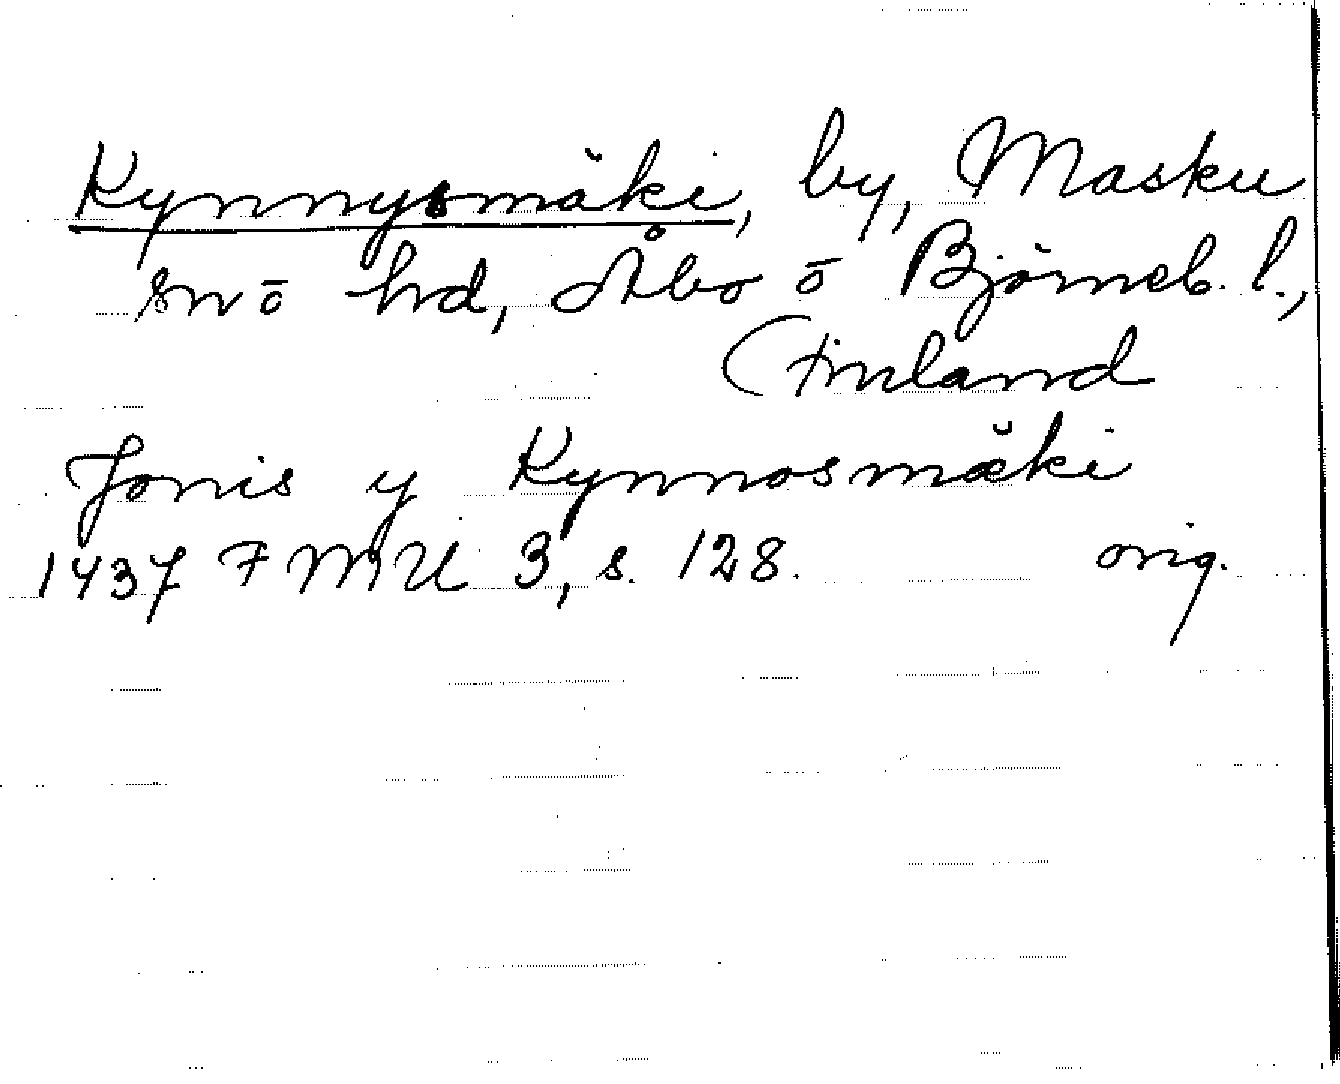 Kynnysmäki, by, Masku
sn ō hd, Åbo ō Björneb. l.,
(Finland
Jonis y Kynnosmäki
1437 FMU 3, s. 128. orig.